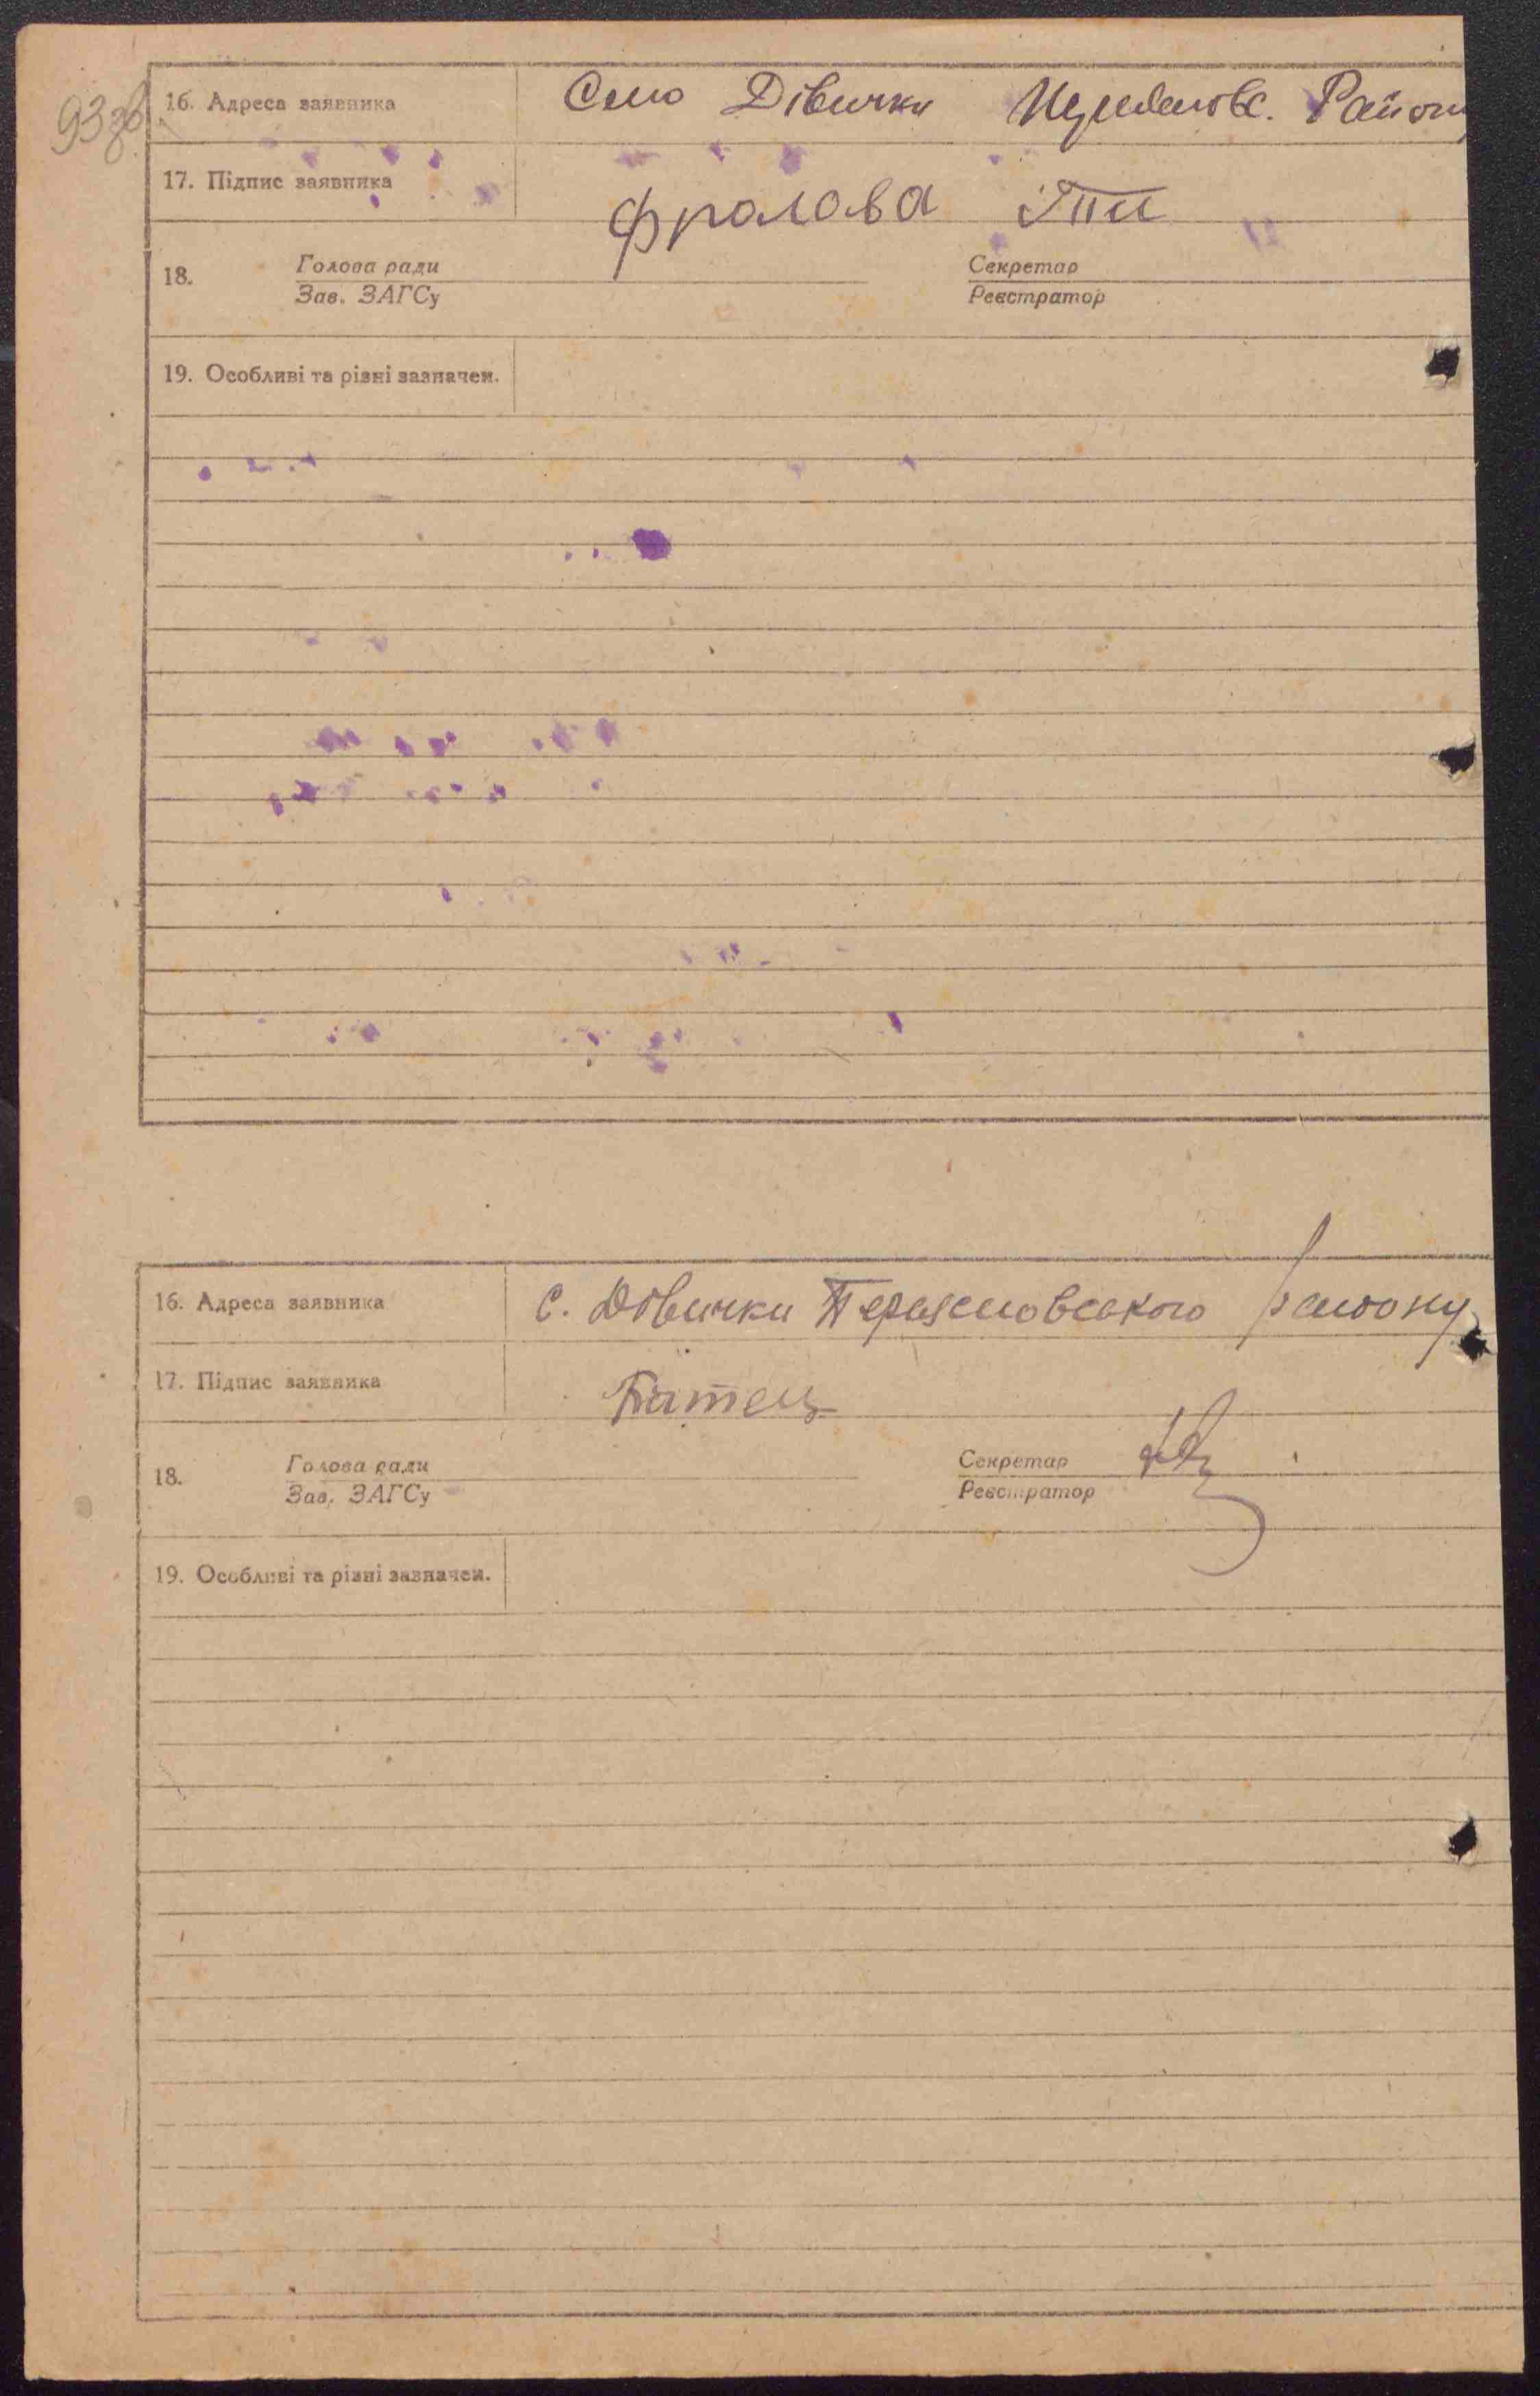 93зв
16. Адреса заявника Село Дівички Району
17. Підпис заявника Фролова
18. Голова ради Секретар
Зав. ЗАГСу Реєстратор
19. Особливі та різні зазначен.
16. Адреса заявника С. Дівички Переяславського району
17. Підпис заявника
18. Голова ради Секретар
Зав. ЗАГСу Реєстратор
19. Особливі та різні зазначен.